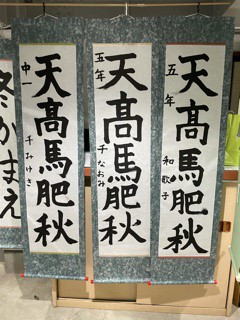 天髙馬肥秋
五年 和歌子
天髙馬肥秋
五年 千なおみ
天髙馬肥秋
中一 千みゆき
冬がまえ